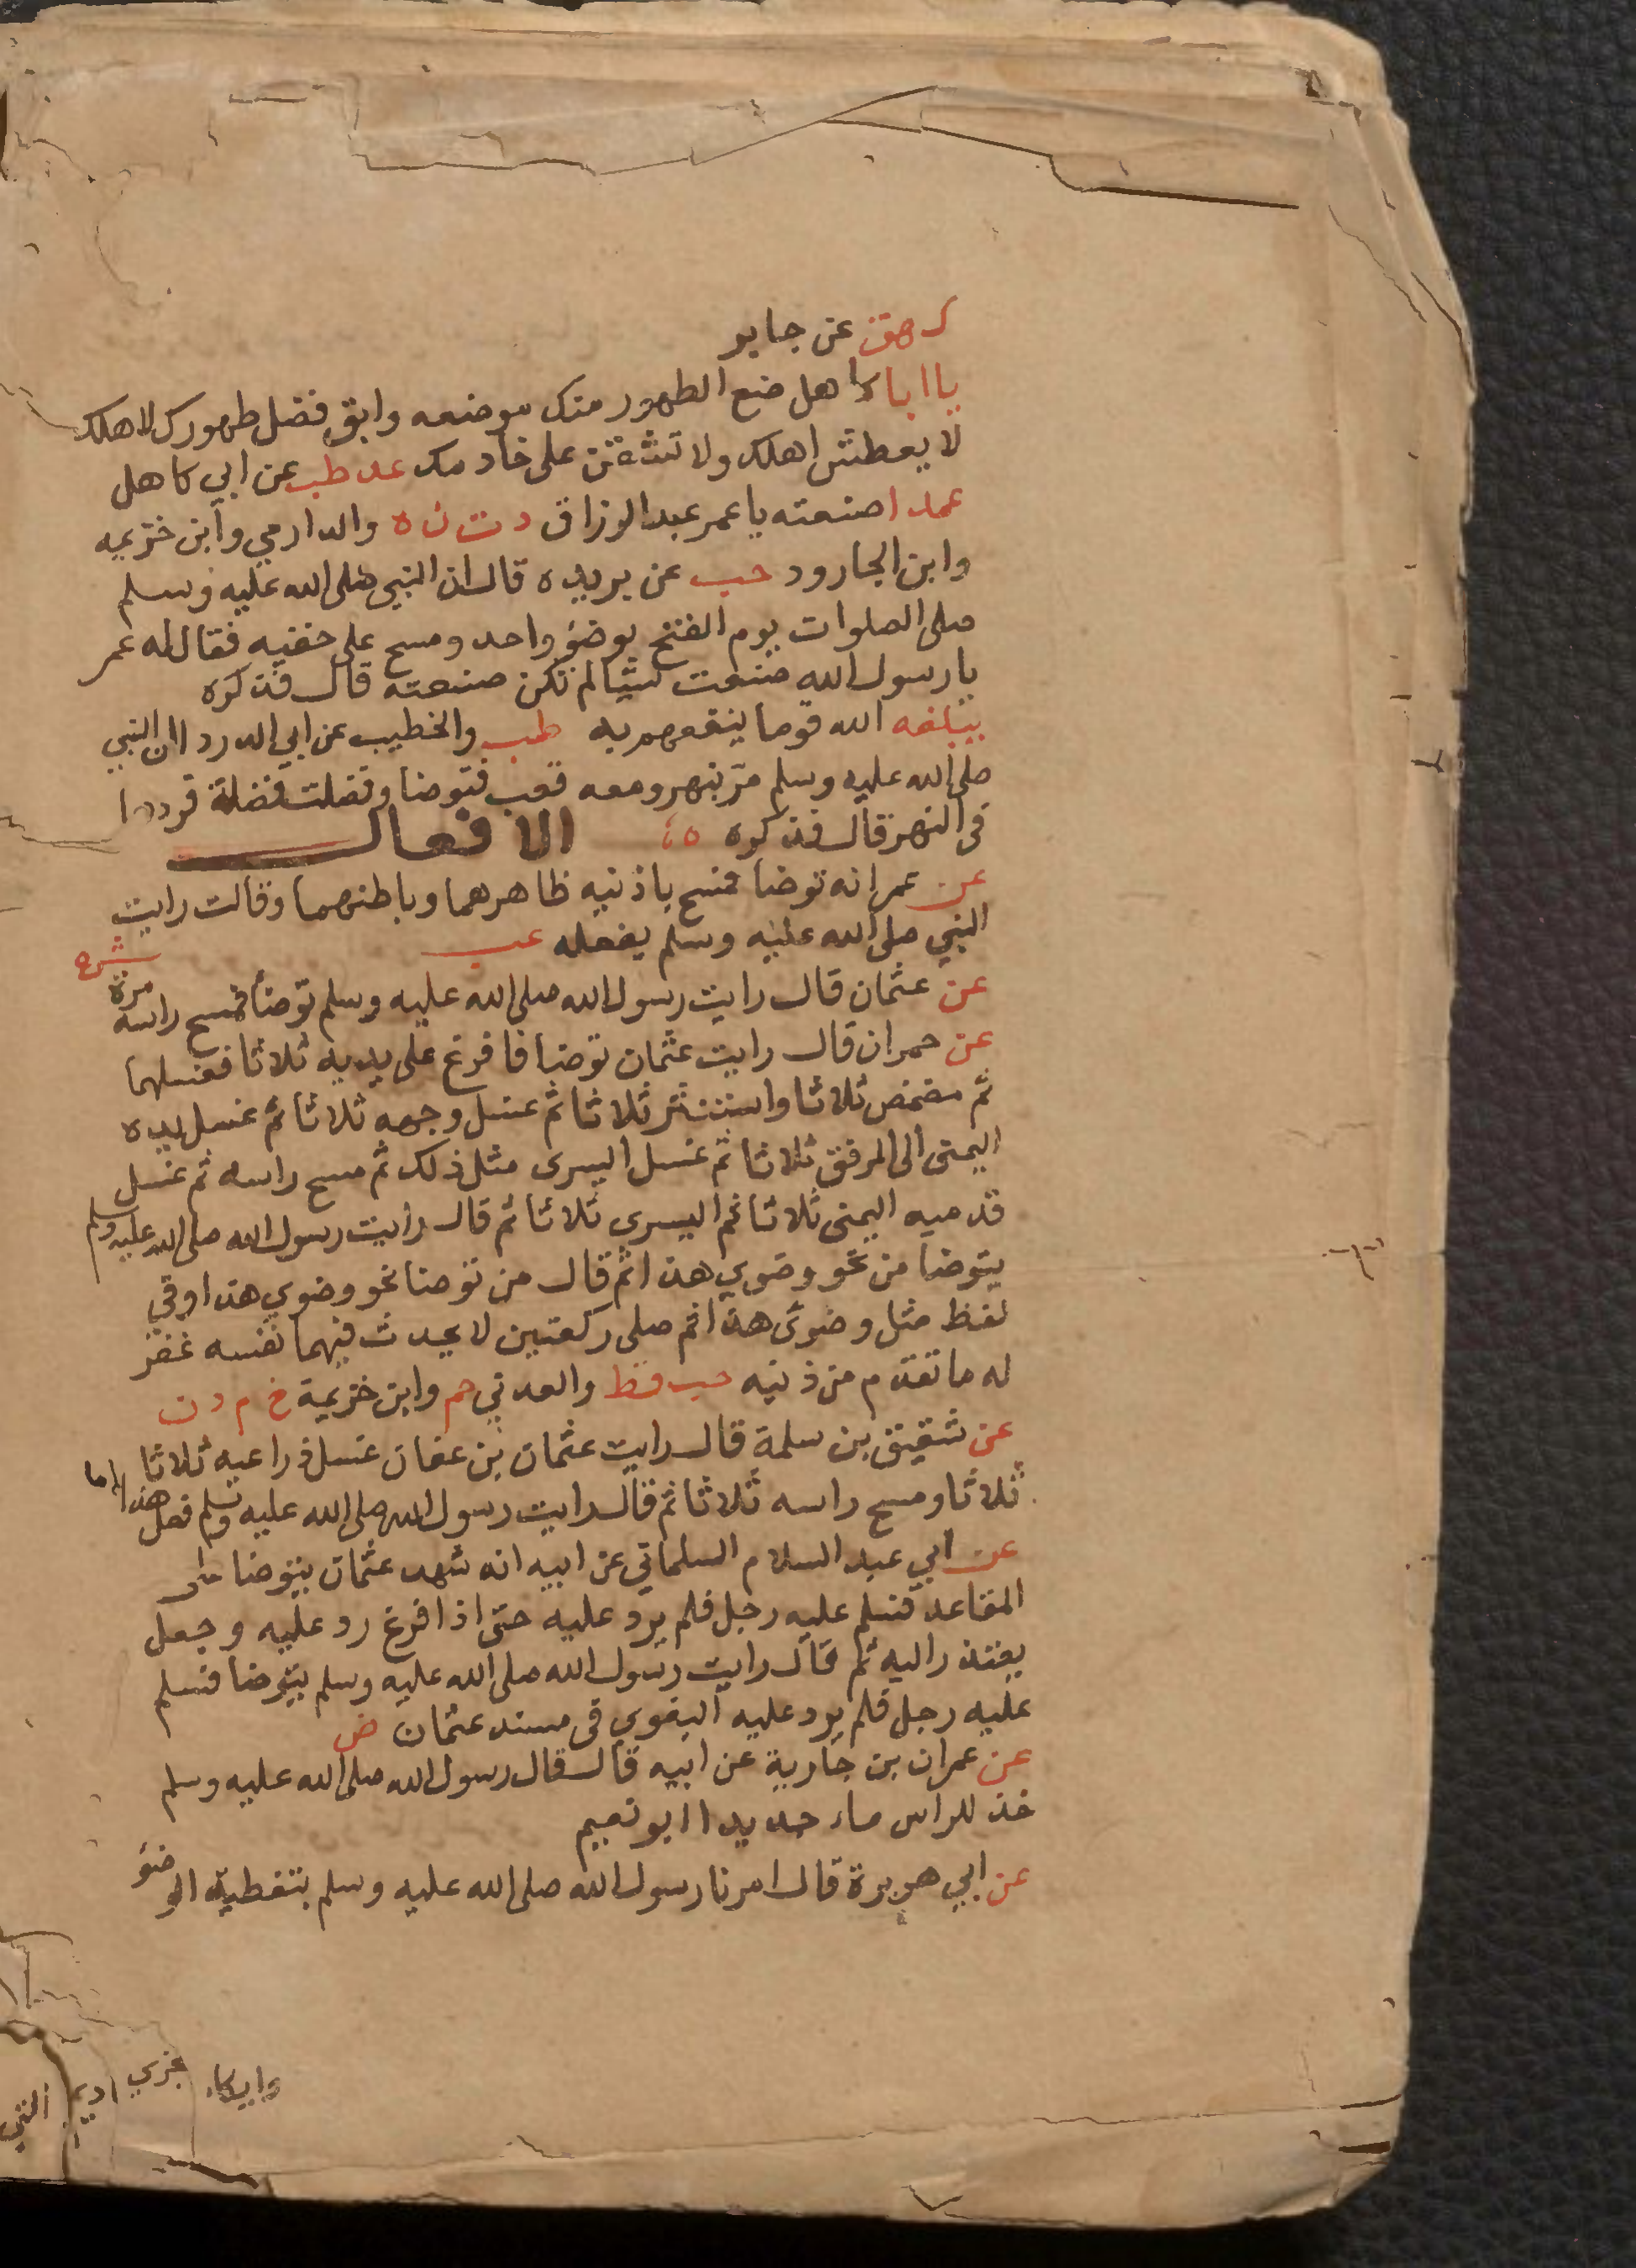 ك هق عن جابر
يا ابا كاهل ضع الطهور منك موضعه وابق فضل طهورك لاهلك
لا يعطش اهلك ولا تشققن على خادمك عد طب عن ابي كاهل
عمدا صنعته يا عمر عبد الرزاق د ت ن ه والدارمي وابن خزيمه
وابن الجارود حب عن بريده قال ان النبي صلى الله عليه وسلم
صلى الصلوات يوم الفتح بوضؤ واحد ومسح على خفيه فقال له عمر
يا رسول الله صنعت شيا لم تكن صنعته قال فذكره
يبلغه الله قوما ينفعهم به طب والخطيب عن ابي الدردا ان النبي
صلى الله عليه وسلم مر بنهر ومعه قعب فتوضا وفضلت فضلة فردها
في النهر قال فذكره
الافعال
عن عمر انه توضا فمسح باذنيه ظاهرهما وباطنهما وقالت رايت
النبي صلى الله عليه وسلم يفعله عب
عن عثمان قال رايت رسول الله صلى الله عليه وسلم توضأ فمسح راسه مرة ش ه
عن حمران قال رايت عثمان توضا فافرغ على يديه ثلاثا فغسلهما
ثم مضمض ثلاثا واستنثر ثلاثا ثم غسل وجهه ثلاثا ثم غسل يده
اليمنى الى المرفق ثلاثا ثم غسل اليسرى مثل ذلك ثم مسح راسه ثم غسل
قدميه اليمنى ثلاثا ثم اليسرى ثلاثا ثم قال رايت رسول الله صلى الله عليه وسلم
يتوضا من نحو وضوي هذا ثم قال من توضا نحو وضوي هذا وفي
لفظ مثل وضوئ هذا ثم صلى ركعتين لا يحدث فيهما نفسه غفر
له ما تقدم من ذنبه حب قط والعدني حم وابن خزيمة خ م د ن
عن شقيق بن سلمة قال رايت عثمان بن عفان غسل ذراعيه ثلاثا
ثلاثا ومسح راسه ثلاثا ثم قال رايت رسول الله صلى الله عليه وسلم فعل هذا
عن ابي عبد السلام السلماني عن ابيه انه شهد عثمان يتوضا على
المقاعد فسلم عليه رجل فلم يرد عليه حتى اذا فرغ رد عليه وجعل
يعتذر اليه ثم قال رايت رسول الله صلى الله عليه وسلم يتوضا فسلم
عليه رجل فلم يرد عليه البغوي في مسند عثمان ض
عن عمران بن جارية عن ابيه قال قال رسول الله صلى الله عليه وسلم
خذ للراس ماء جديدا ابو نعيم
عن ابي هريرة قال امرنا رسول الله صلى الله عليه وسلم بتغطية الوضؤ
وايكاء